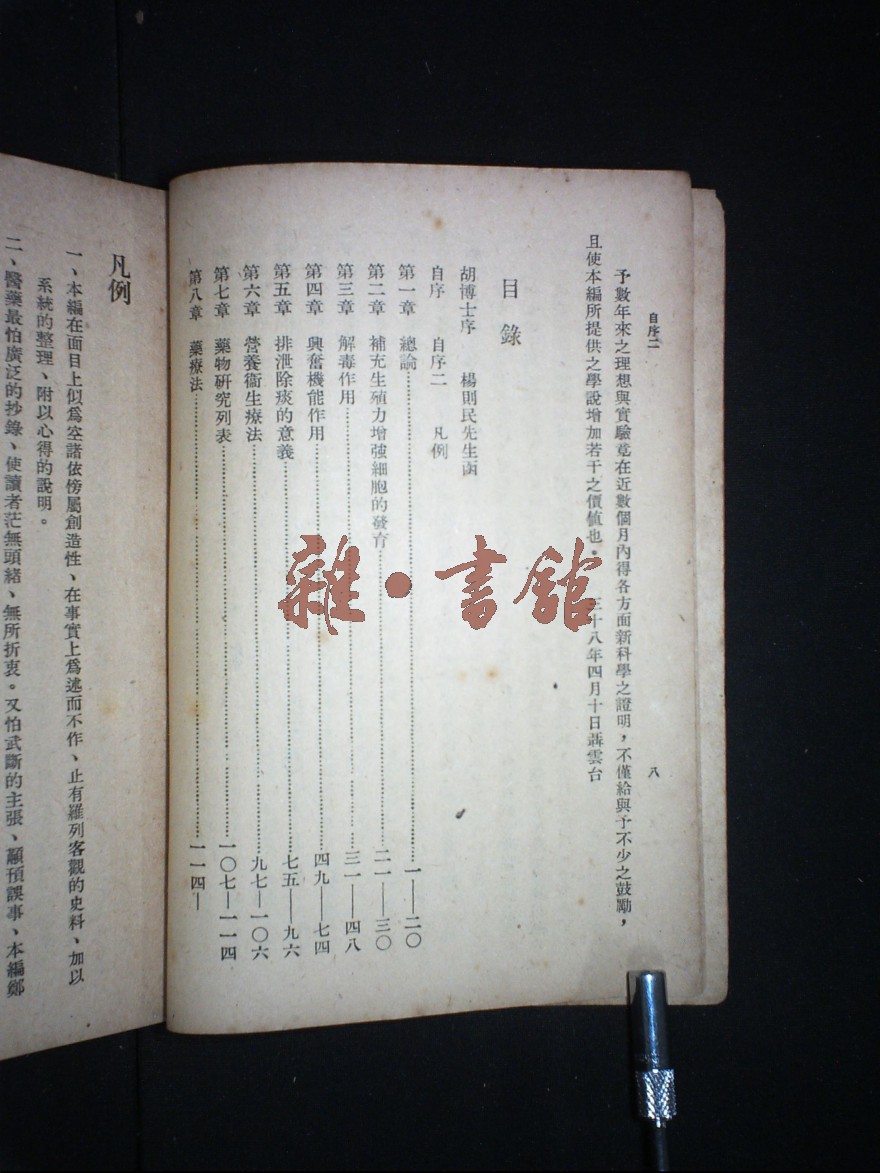 自序二
八
予數年來之理想與實驗竟在近數個月內得各方面新科學之證明，不僅給與予不少之鼓勵，
且使本編所提供之學設增加若干之價值也。 三十八年四月十日聶雲台
目錄
胡博士序 楊則民先生函
自序 自序二 凡例
第一章 總論……一——二〇
第二章 補充生殖力增強細胞的發育……二一——三〇
第三章 解毒作用……三一——四八
第四章 興奮機能作用……四九——七四
第五章 排泄除痰的意義……七五——九六
第六章 營養衞生療法……九七—一〇六
第七章 藥物研究列表……一〇七—一一四
第八章 藥療法……一一四—
凡例
一、本編在面目上似爲空諸依傍屬創造性、在事實上爲述而不作、止有羅列客觀的史料、加以
系統的整理、附以心得的說明。
二、醫藥最怕廣泛的抄錄、使讀者茫無頭緒、無所折衷。又怕武斷的主張、顢頇誤事、本編鄭
雜·書館